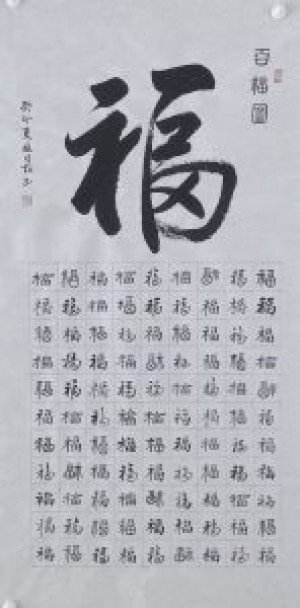 百福圖
福
福福福福福福福福福
福福福福福福福福福
福福福福福福福福福
福福福福福福福福福
福福福福福福福福福
福福福福福福福福福
福福福福福福福福福
福福福福福福福福福
福福福福福福福福福
福福福福福福福福福
福福福福福福福福福
癸卯夏